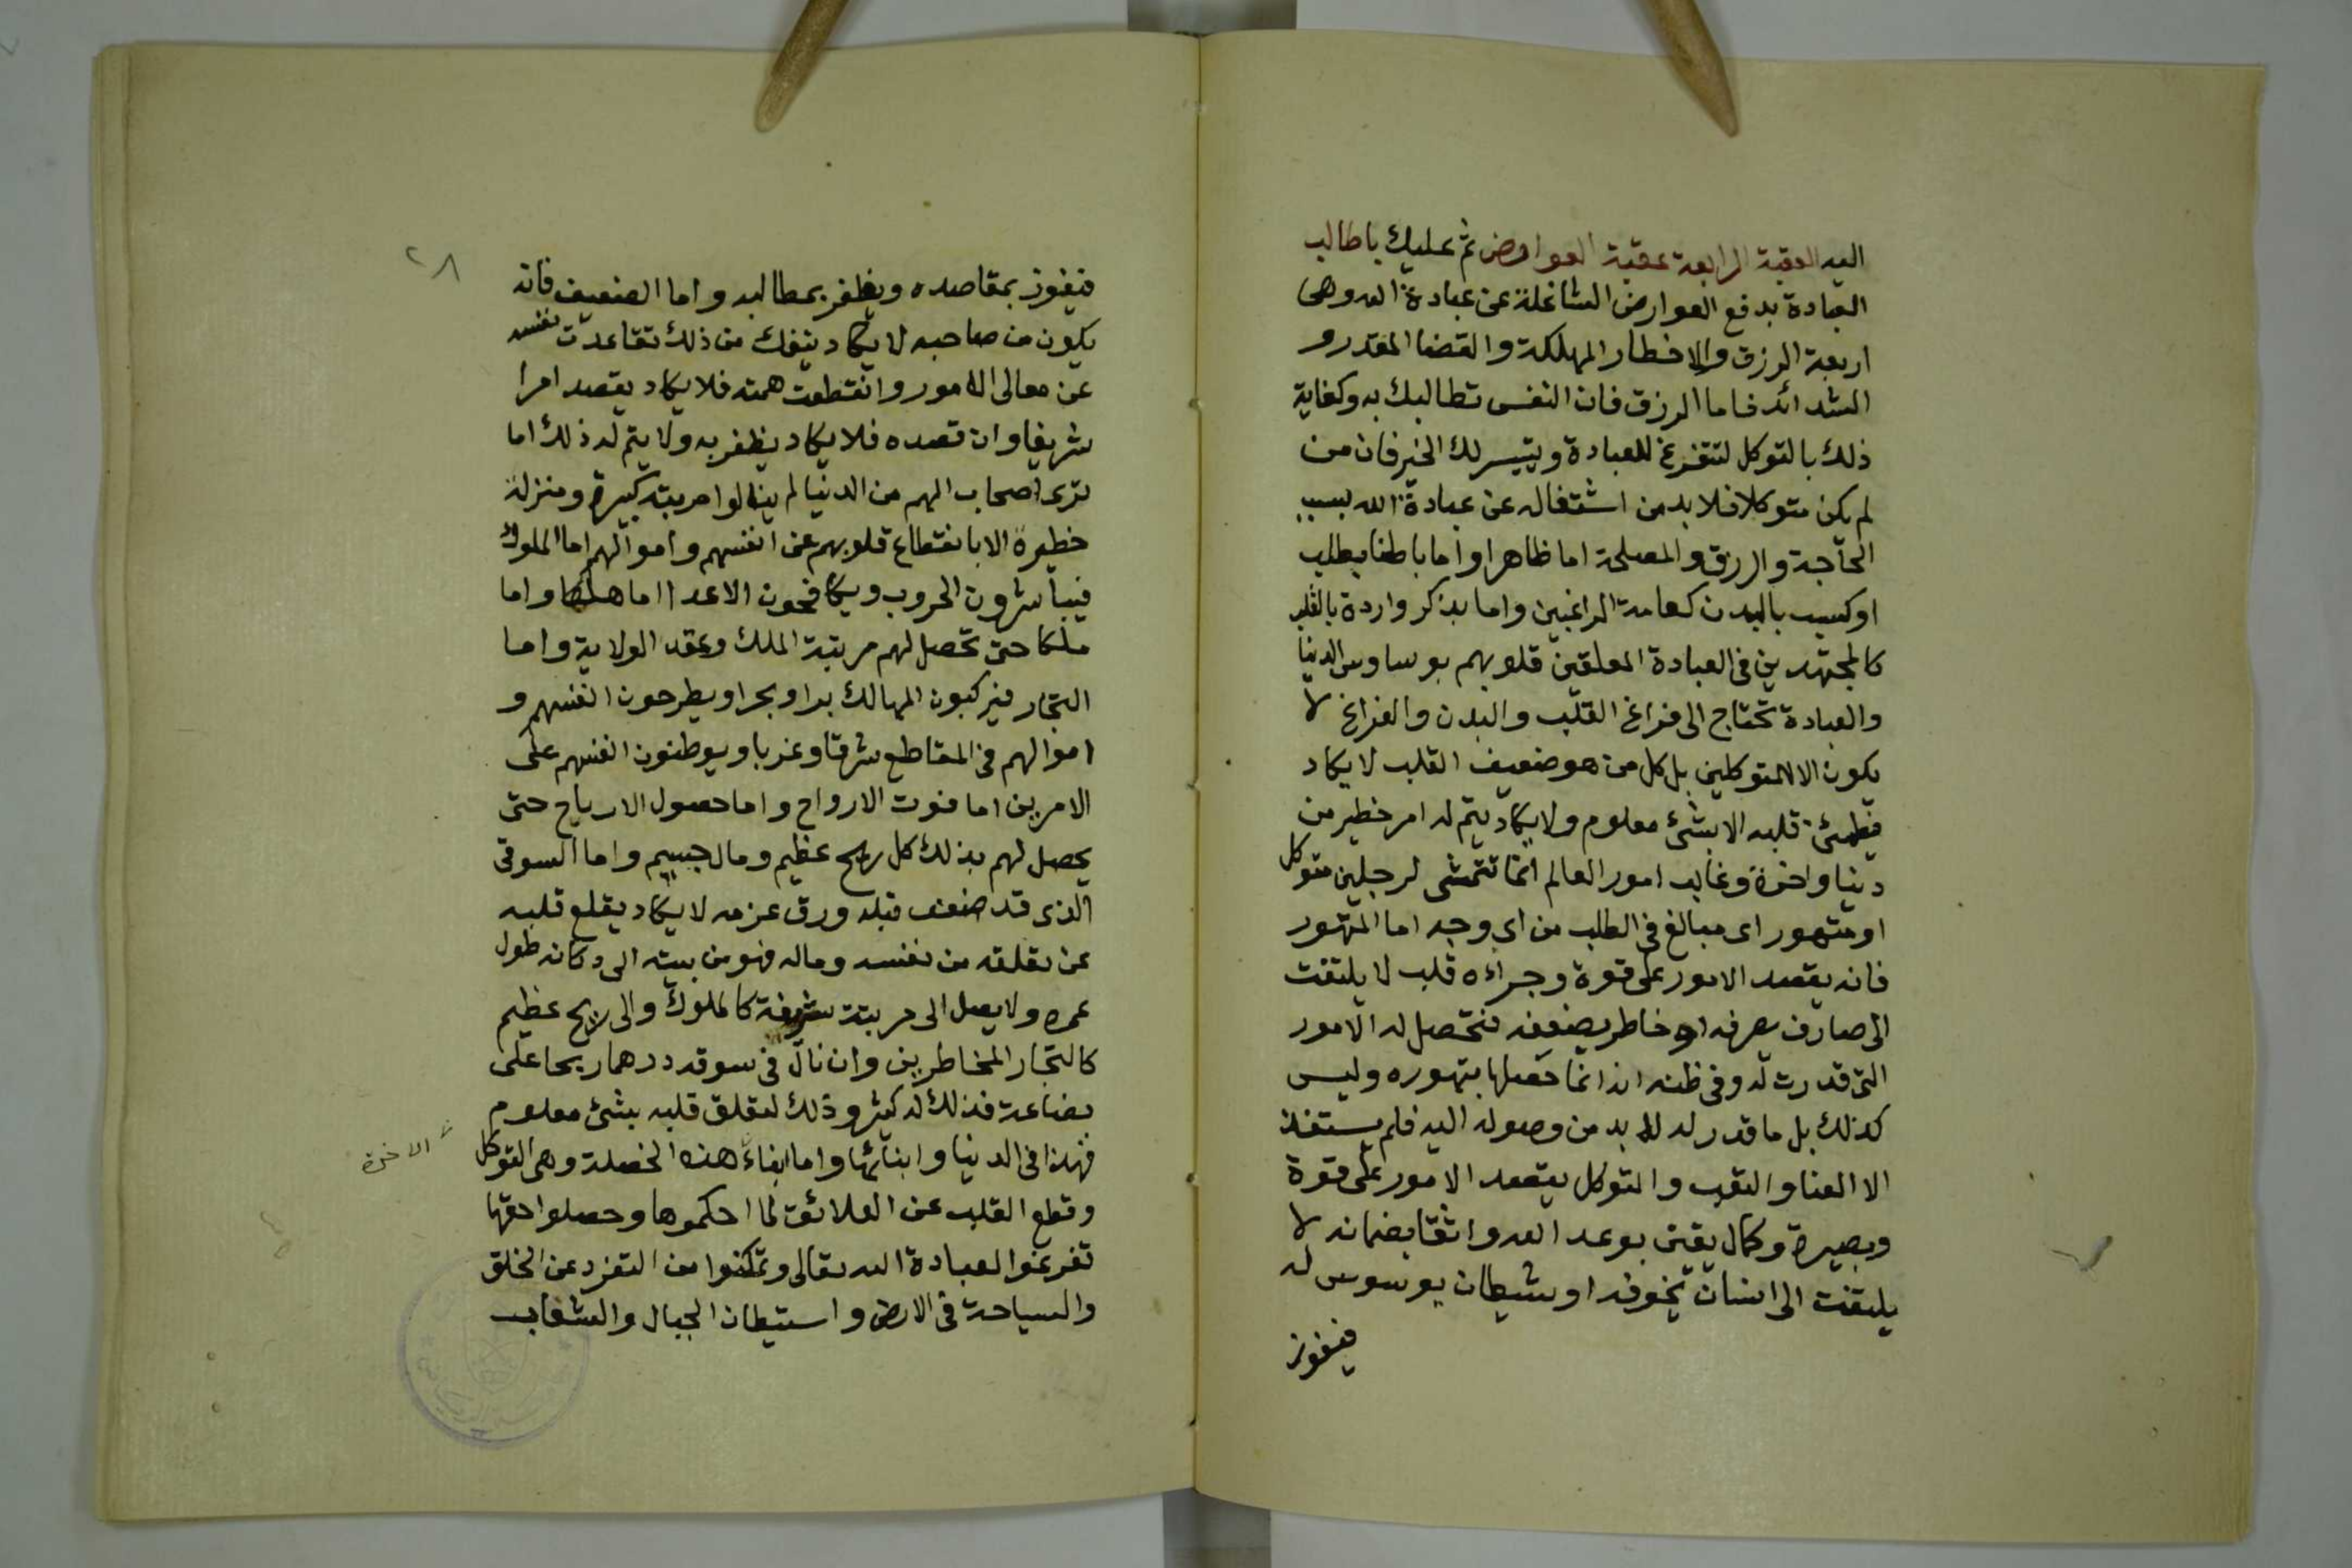 اليه العقبة الرابعة عقبة العوارض ثم عليك يا طالب
العبادة بدفع العوارض الشاغلة عن عبادة الله وهى
اربعة الرزق والاخطار المهلكة والقضا المقدر و
الشدائد فاما الرزق فان النفس تطالبك به وكفاية
ذلك بالتوكل لتتفرغ للعبادة ويتيسر لك الخير فان من
لم يكن متوكلا فلا بد من اشتغاله عن عبادة الله بسبب
الحاجة والرزق والمصلحة اما ظاهرا واما باطنا بطلب
او كسب بالبدن كعامة الراغبين واما بذكر واردة بالقلب
كالمجتهدين فى العبادة المعلقين قلوبهم بوساوس الدنيا
والعبادة تحتاج الى فراغ القلب والبدن والفراغ لا
يكون الا للمتوكلين بل كل من هو ضعيف القلب لا يكاد
يطمئن قلبه الا بشئ معلوم ولا يكاد يتم له امر خطير من
دنيا واخرة وغالب امور العالم انما تتمشى لرجلين متوكل
او متهور اى مبالغ فى الطلب من اى وجه اما المتهور
فانه يقصد الامور على قوة وجراءه قلب لا يلتفت
الى صارف يصرفه او خاطر يضعفه فتحصل له الامور
التى قدرت له وفى ظنه انه انما حصلها بتهوره وليس
كذلك بل ما قدر له لا بد من وصوله اليه فلم يستفد
الا العنا والتعب والمتوكل يقصد الامور على قوة
وبصيرة وكمال يقين بوعد الله واثقا بضمانه لا
يلتفت الى انسان يخوفه او شيطان يوسوس له
فيفوز
٢٨
فيفوز بمقاصده ويظفر بمطالبه واما الضعيف فانه
يكون من صاحبه لا يكاد ينفك من ذلك تقاعدت نفسه
عن معالى الامور وانقطعت همته فلا يكاد يقصد امرا
شريفا وان قصده فلا يكاد يظفر به ولا يتم له ذلك اما
ترى اصحاب الهمم من الدنيا لم ينالوا مرتبة كبيرة ومنزلة
خطيرة الا بانقطاع قلوبهم عن انفسهم واموالهم اما الملوك
فيباشرون الحروب ويكافحون الاعدا اما هلكا واما
ملكا حتى تحصل لهم مرتبة الملك وعقد الولاية واما
التجار فيركبون المهالك برا وبحرا ويطرحون انفسهم و
اموالهم فى المقاطع شرقا وغربا ويوطنون انفسهم على
الامرين اما فوت الارواح واما حصول الارباح حتى
يحصل لهم بذلك كل ربح عظيم ومال جسيم واما السوقى
الذى قد ضعف قلبه ورق عزمه لا يكاد يقلع قلبه
عن تعلقه من نفسه وماله فهو من بيته الى دكانه طول
عمره ولا يصل الى مرتبة شريفة كالملوك والى ربح عظيم
كالتجار المخاطرين وان نال فى سوقه درهما ربحا على
بضاعة فذلك له كثير وذلك لتعلق قلبه بشئ معلوم
فهذا فى الدنيا وابنائها واما ابناء هذه الخصلة وهى التوكل
الاخرة
وقطع القلب عن العلائق لما احكموها وحصلوا حقها
تفرغوا لعبادة الله تعالى وتمكنوا من التفرد عن الخلق
والسياحة فى الارض واستيطان الجبال والشعاب